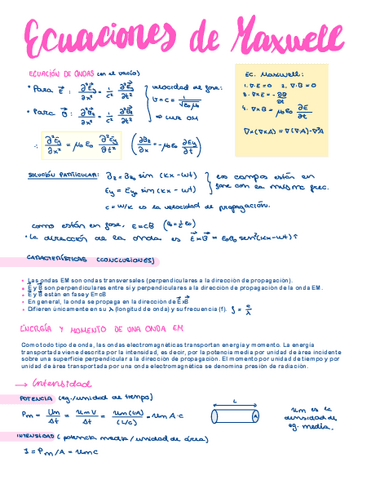 Ecuaciones de Maxwell
ECUACIÓN DE ONDAS (en el vacío)
• Para E⃗ : ∂²E⃗y/∂x² = 1/c² · ∂²E⃗y/∂t²
• Para B⃗ : ∂²B⃗z/∂x² = 1/c² · ∂²B⃗z/∂t²
velocidad de fase:
v = c = 1/√(ε₀μ₀)
Ec. Maxwell:
1. ∇·E = 0 2. ∇·B = 0
3. ∇×E = -∂B/∂t
4. ∇×B = μ₀ε₀ ∂E/∂t
∇×(∇×A) = ∇(∇·A) - ∇²A
∴ ∂²Ey/∂x² = μ₀ε₀ ∂²Ey/∂t² (∂Bz/∂x = -μ₀ε₀ ∂Ey/∂t)
SOLUCIÓN PARTICULAR: Bz = Bz₀ sin (kx - wt)
Ey = Ey₀ sin (kx - wt)
los campos están en
fase con la misma frec.
c = w/k es la velocidad de propagación.
como están en fase, E = cB (B₀ = 1/c E₀)
• La dirección de la onda es E⃗×B⃗ = E₀B₀ sen²(kx-wt) î
CARACTERÍSTICAS (CONCLUSIONES)
• Las ondas EM son ondas transversales (perpendiculares a la dirección de propagación).
• E⃗ y B⃗ son perpendiculares entre sí y perpendiculares a la dirección de propagación de la onda EM.
• E y B están en fase y E=cB
• En general, la onda se propaga en la dirección de E⃗xB⃗
• Difieren únicamente en su λ (longitud de onda) y su frecuencia (f). f = c/λ
ENERGÍA Y MOMENTO DE UNA ONDA EM
Como todo tipo de onda, las ondas electromagnéticas transportan energía y momento. La energía
transportada viene descrita por la intensidad, es decir, por la potencia media por unidad de área incidente
sobre una superficie perpendicular a la dirección de propagación. El momento por unidad de tiempo y por
unidad de área transportado por una onda electromagnética se denomina presión de radiación.
→ Intensidad
POTENCIA (eg./unidad de tiempo)
Pm = Um/Δt = um V/Δt = um(LA)/(L/c) = um A c
L
A
um es la
densidad de
eg. media.
INTENSIDAD (potencia media / unidad de área)
I = Pm/A = um c